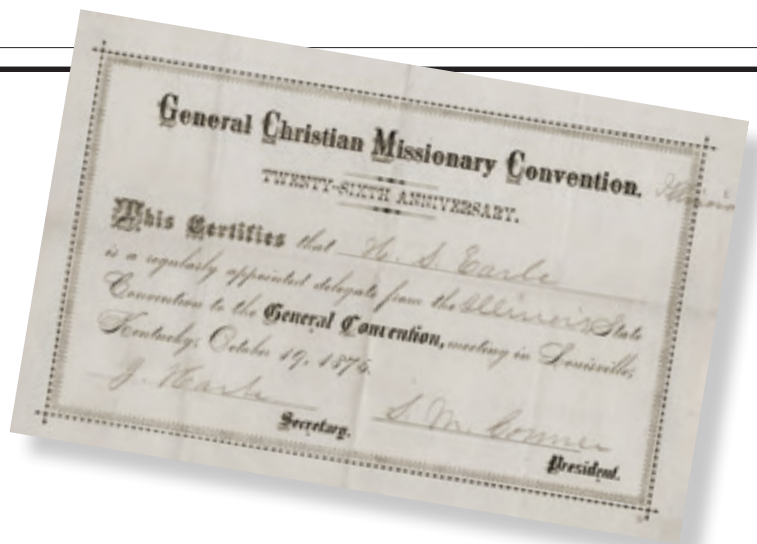 General Christian Missionary Convention.
Illinois
TWENTY-SIXTH ANNIVERSARY.
This Certifies that H. S. Earle
is a regularly appointed delegate from the Illinois State
Convention to the General Convention, meeting in Louisville,
Kentucky, October 19, 1875.
J.
S. M. Conner
Secretary.
President.